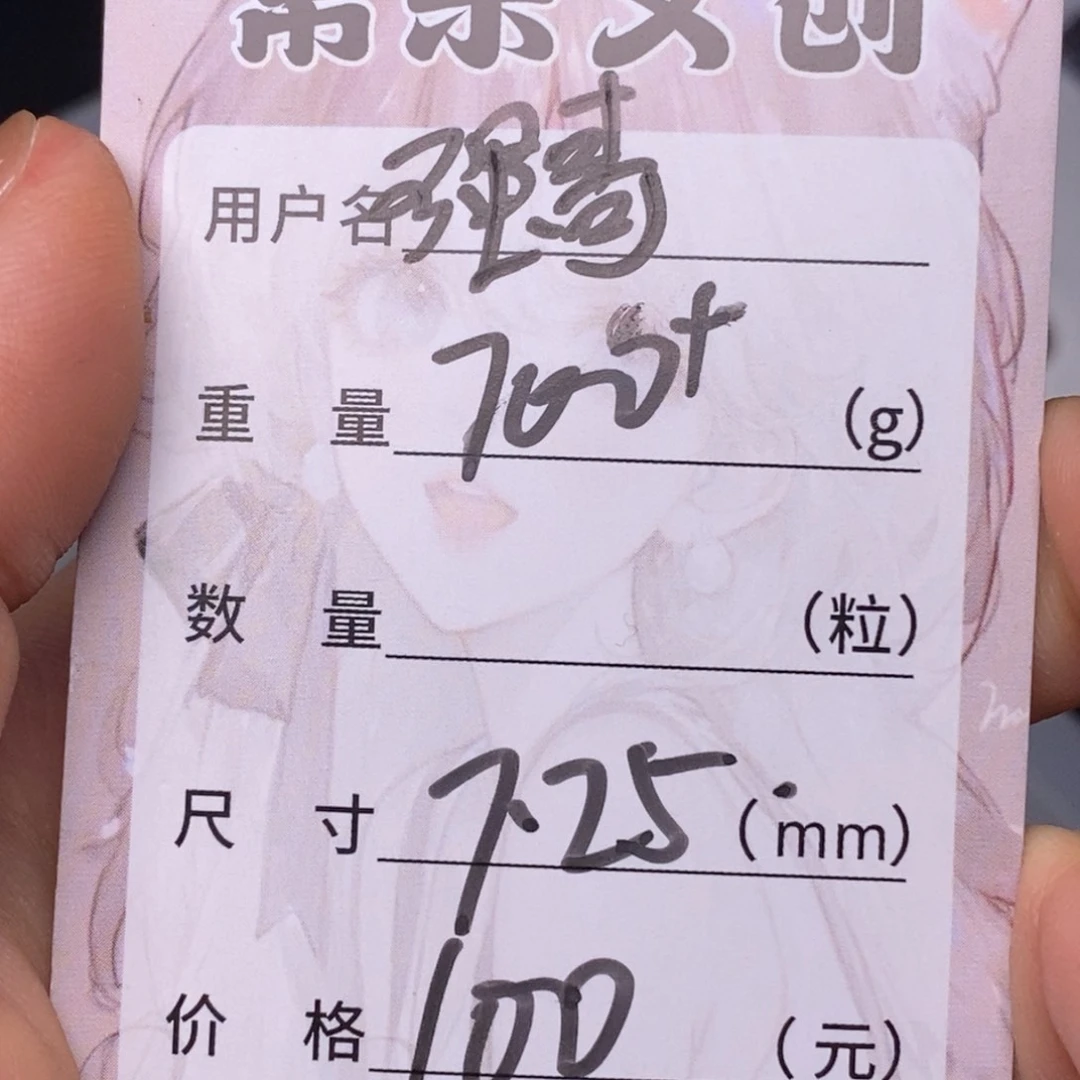 文创
用户名
重量 700+ (g)
数量 (粒)
尺寸 7.25 (mm)
价格 100 (元)